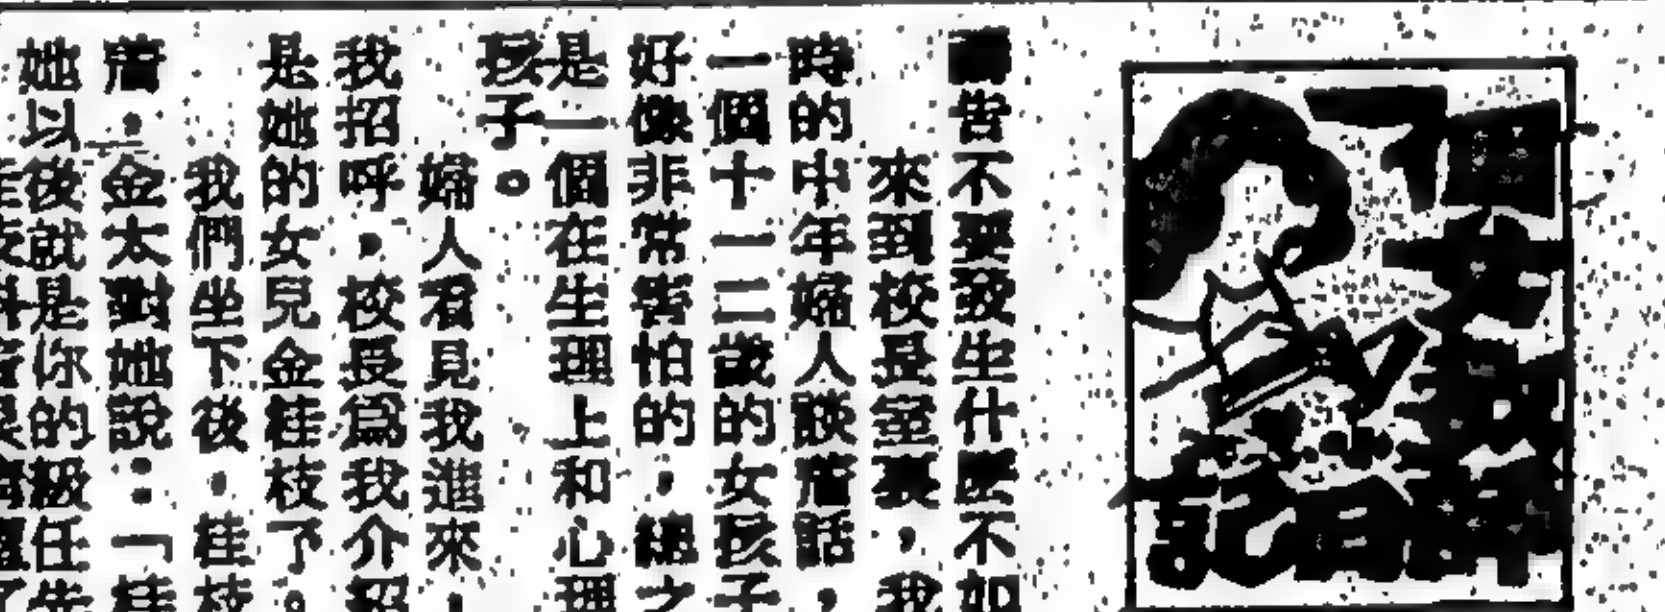 日記
告不要發生什麼不如
來到校長室裏，我
時的中年婦人談着話，
一個十一二歲的女孩子
好像非常害怕的，總之
是一個在生理上和心理
孩子。
婦人看見我進來，
我招呼，校長爲我介紹
是她的女兒金桂枝了。
我們坐下後，桂枝
着，金太對她說：「桂
她以後就是你的級任先